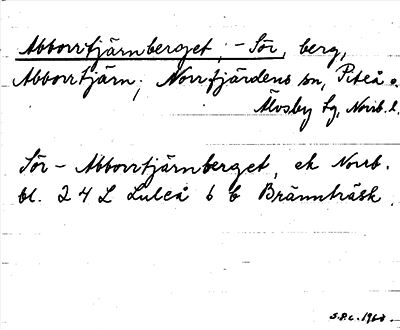 Abborrtjärnberget, -Sör, berg,
Abborrtjärn; Norrfjärdens sn, Piteå o.
Älvsby tg, Norrb. l.
Sör-Abborrtjärnberget, ek Norrb.
bl. 24 L Luleå 6 b Brännträsk.
S.P.c. 1960.